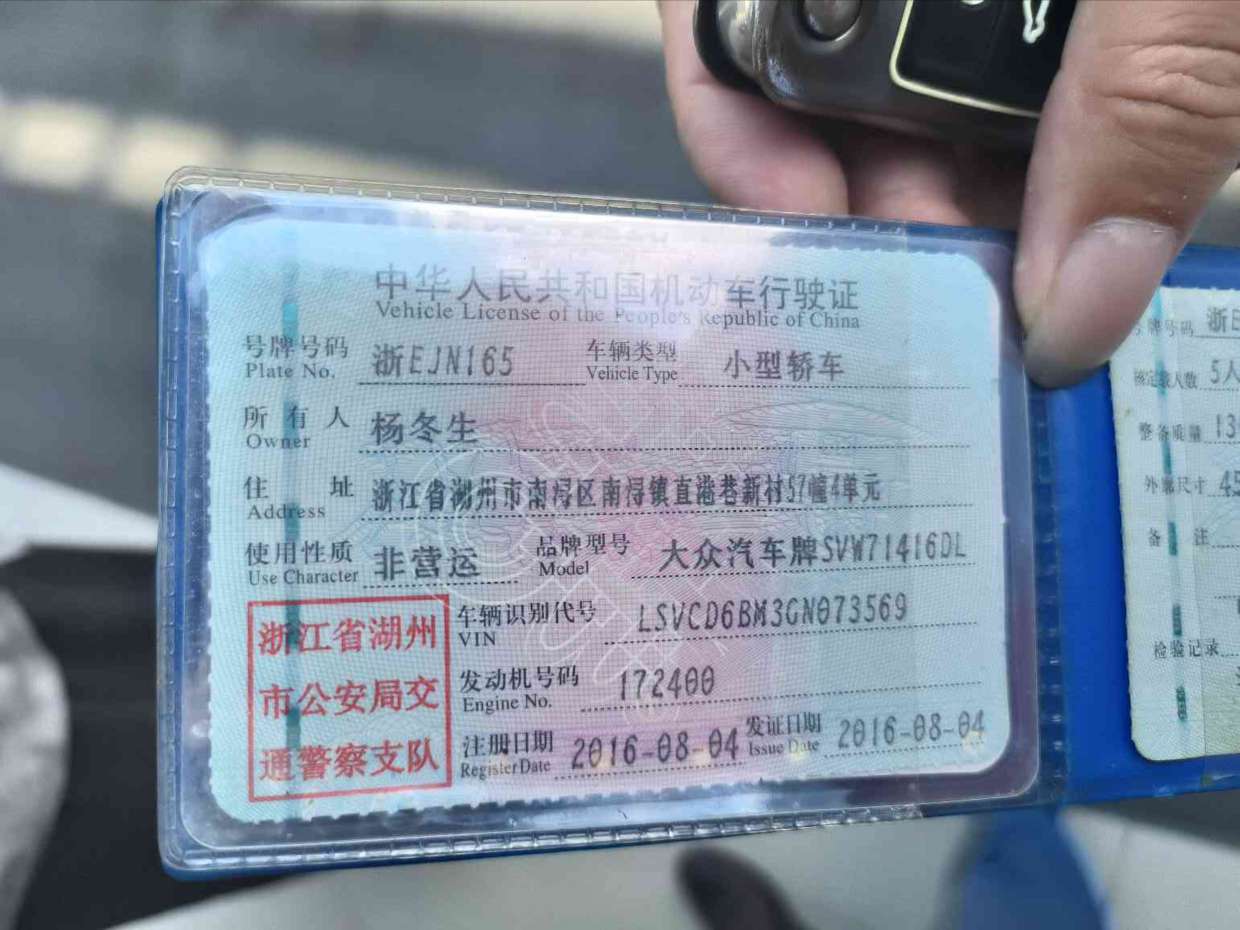 中华人民共和国机动车行驶证
Vehicle License of the People's Republic of China
号牌号码 浙EJN165 车辆类型 小型轿车
Plate No. Vehicle Type
所有人 杨冬生
Owner
住址 浙江省湖州市南浔区南浔镇直港巷新村57幢4单元
Address
使用性质 非营运 品牌型号 大众汽车牌SVW71416DL
Use Character Model
浙江省湖州
市公安局交
通警察支队
车辆识别代号 LSVCD6BM3GN073569
VIN
发动机号码 172400
Engine No.
注册日期 2016-08-04 发证日期 2016-08-04
Register Date Issue Date
号牌号码 浙E
核定载人数 5人
整备质量 13
外廓尺寸 45
备注
检验记录